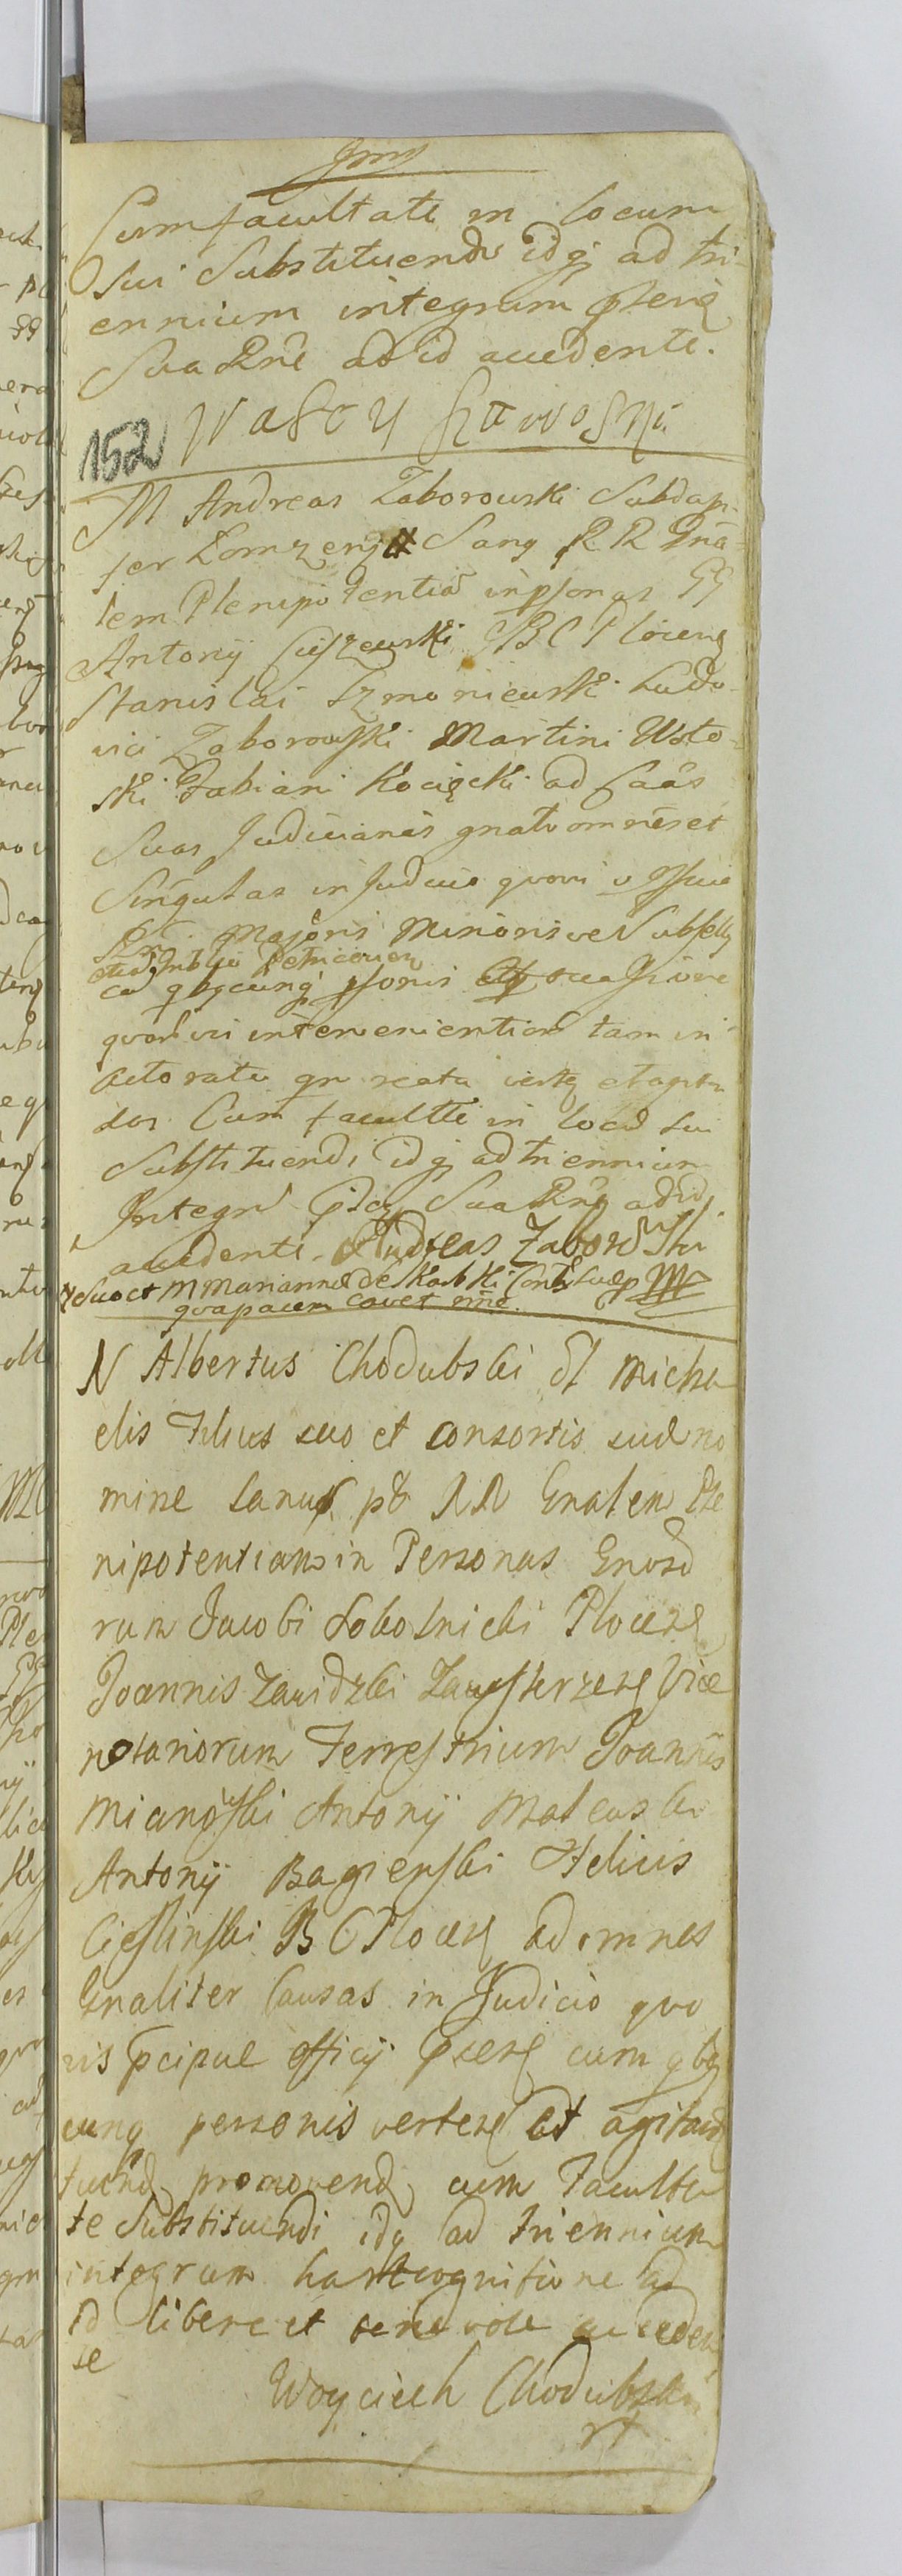 Cum facultate in locum
sui Substituendi idq ad tri-
ennium integrum
Sua Rne ad id accedente.
152
M Andreas Zaborowski Subdap-
fer Lomzens Sang RR Gna-
lem Plenipotentia in psonas GG
Antonij Ciszewski BC Plocens
Stanislai Szmoniewski Ludo-
vici Zaborowski Martini Usto-
ski Fabiani Kocięcki ad Caas
Suas Judiciarias gnatr omnes et
Singulas in Judicio quovis officio
Majoris Minorisve Subselly
cu qbscunq psonis occasione
quorumvis intervenientium tam in
actoratu qm reatu verten et agitan
das Cum facultte in locu sui
Substituendi idq ad triennium
Integru Sua Rne ad id
accedente. Andreas Zaborowski
suo et M Marianna de Skarbki Contls suae
qua pacem cavet
N Albertus Chodubski ol Micha
elis Filius suo et consortis suae no
mine sanus pb RR Gnalem Ple
nipotentiam in Personas Gnoso
rum Jacobi Sokolnicki Plocens
Joannis Zawidzki Zawskrzens Vice
notariorum Terrestrium Joannis
Mianowski Antonij Malewski
Antonij Bagienski Felicis
Cieslinski BC Plocens ad omnes
Gnaliter Causas in Judicio quo
vis pcipue officij psens cum qbs
cunq personis verten et agitand
tuend promovend cum Faculta
te Substituendi idq ad triennium
integrum hac recognitione ad
id libere et benevole acceden
te
Woyciech Chodubski